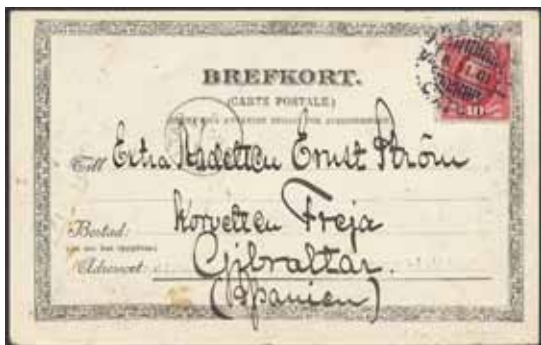 BREFKORT.
(CARTE POSTALE)
Till Extra Kadetten Ernst Ström
Korvetten Freja
Bostad:
Gibraltar.
Adressort:
(Spanien)
10